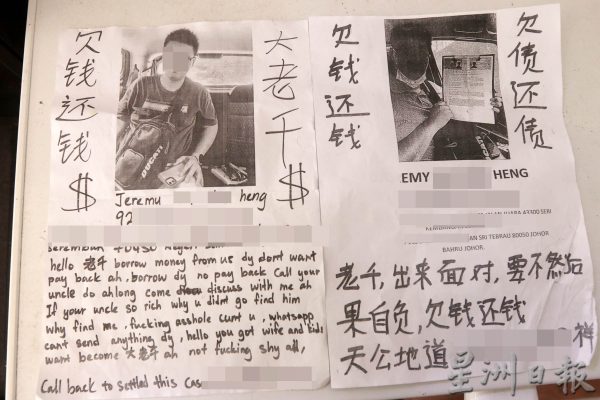 欠钱还钱$
大老千$
DUCATI
Jeremu heng
92
Seremban 70450 Negeri
hello 老千 borrow money from us dy don't want
pay back ah, borrow dy no pay back call your
uncle do ahlong come discuss with me ah
If your uncle so rich why u didnt go find him
why find me, fucking asshole u, whatsapp
cant send anything dy, hello you got wife and kids
want become 大老千 ah not fucking shy ah,
Call back to settled this cas
欠钱还钱
欠债还债
EMY HENG
43300 SERI
AN SRI TEBRAU 80050 JOHOR
BAHRU JOHOR.
老千,出来面对,要不然后
果自负,欠钱还钱
天公地道 祥
星洲日报